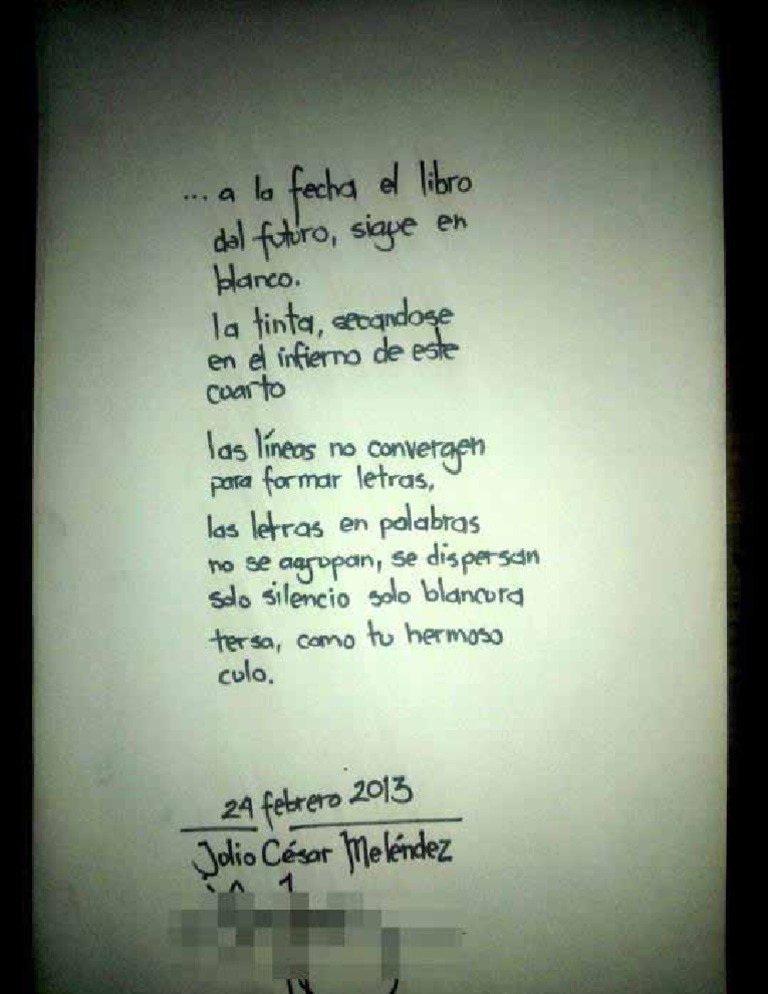 ...a la fecha el libro
del futuro, sigue en
blanco.
la tinta, secandose
en el infierno de este
cuarto
las líneas no convergen
para formar letras,
las letras en palabras
no se agrupan, se dispersan
solo silencio solo blancura
tersa, como tu hermoso
culo.
24 febrero 2013
Julio César Meléndez